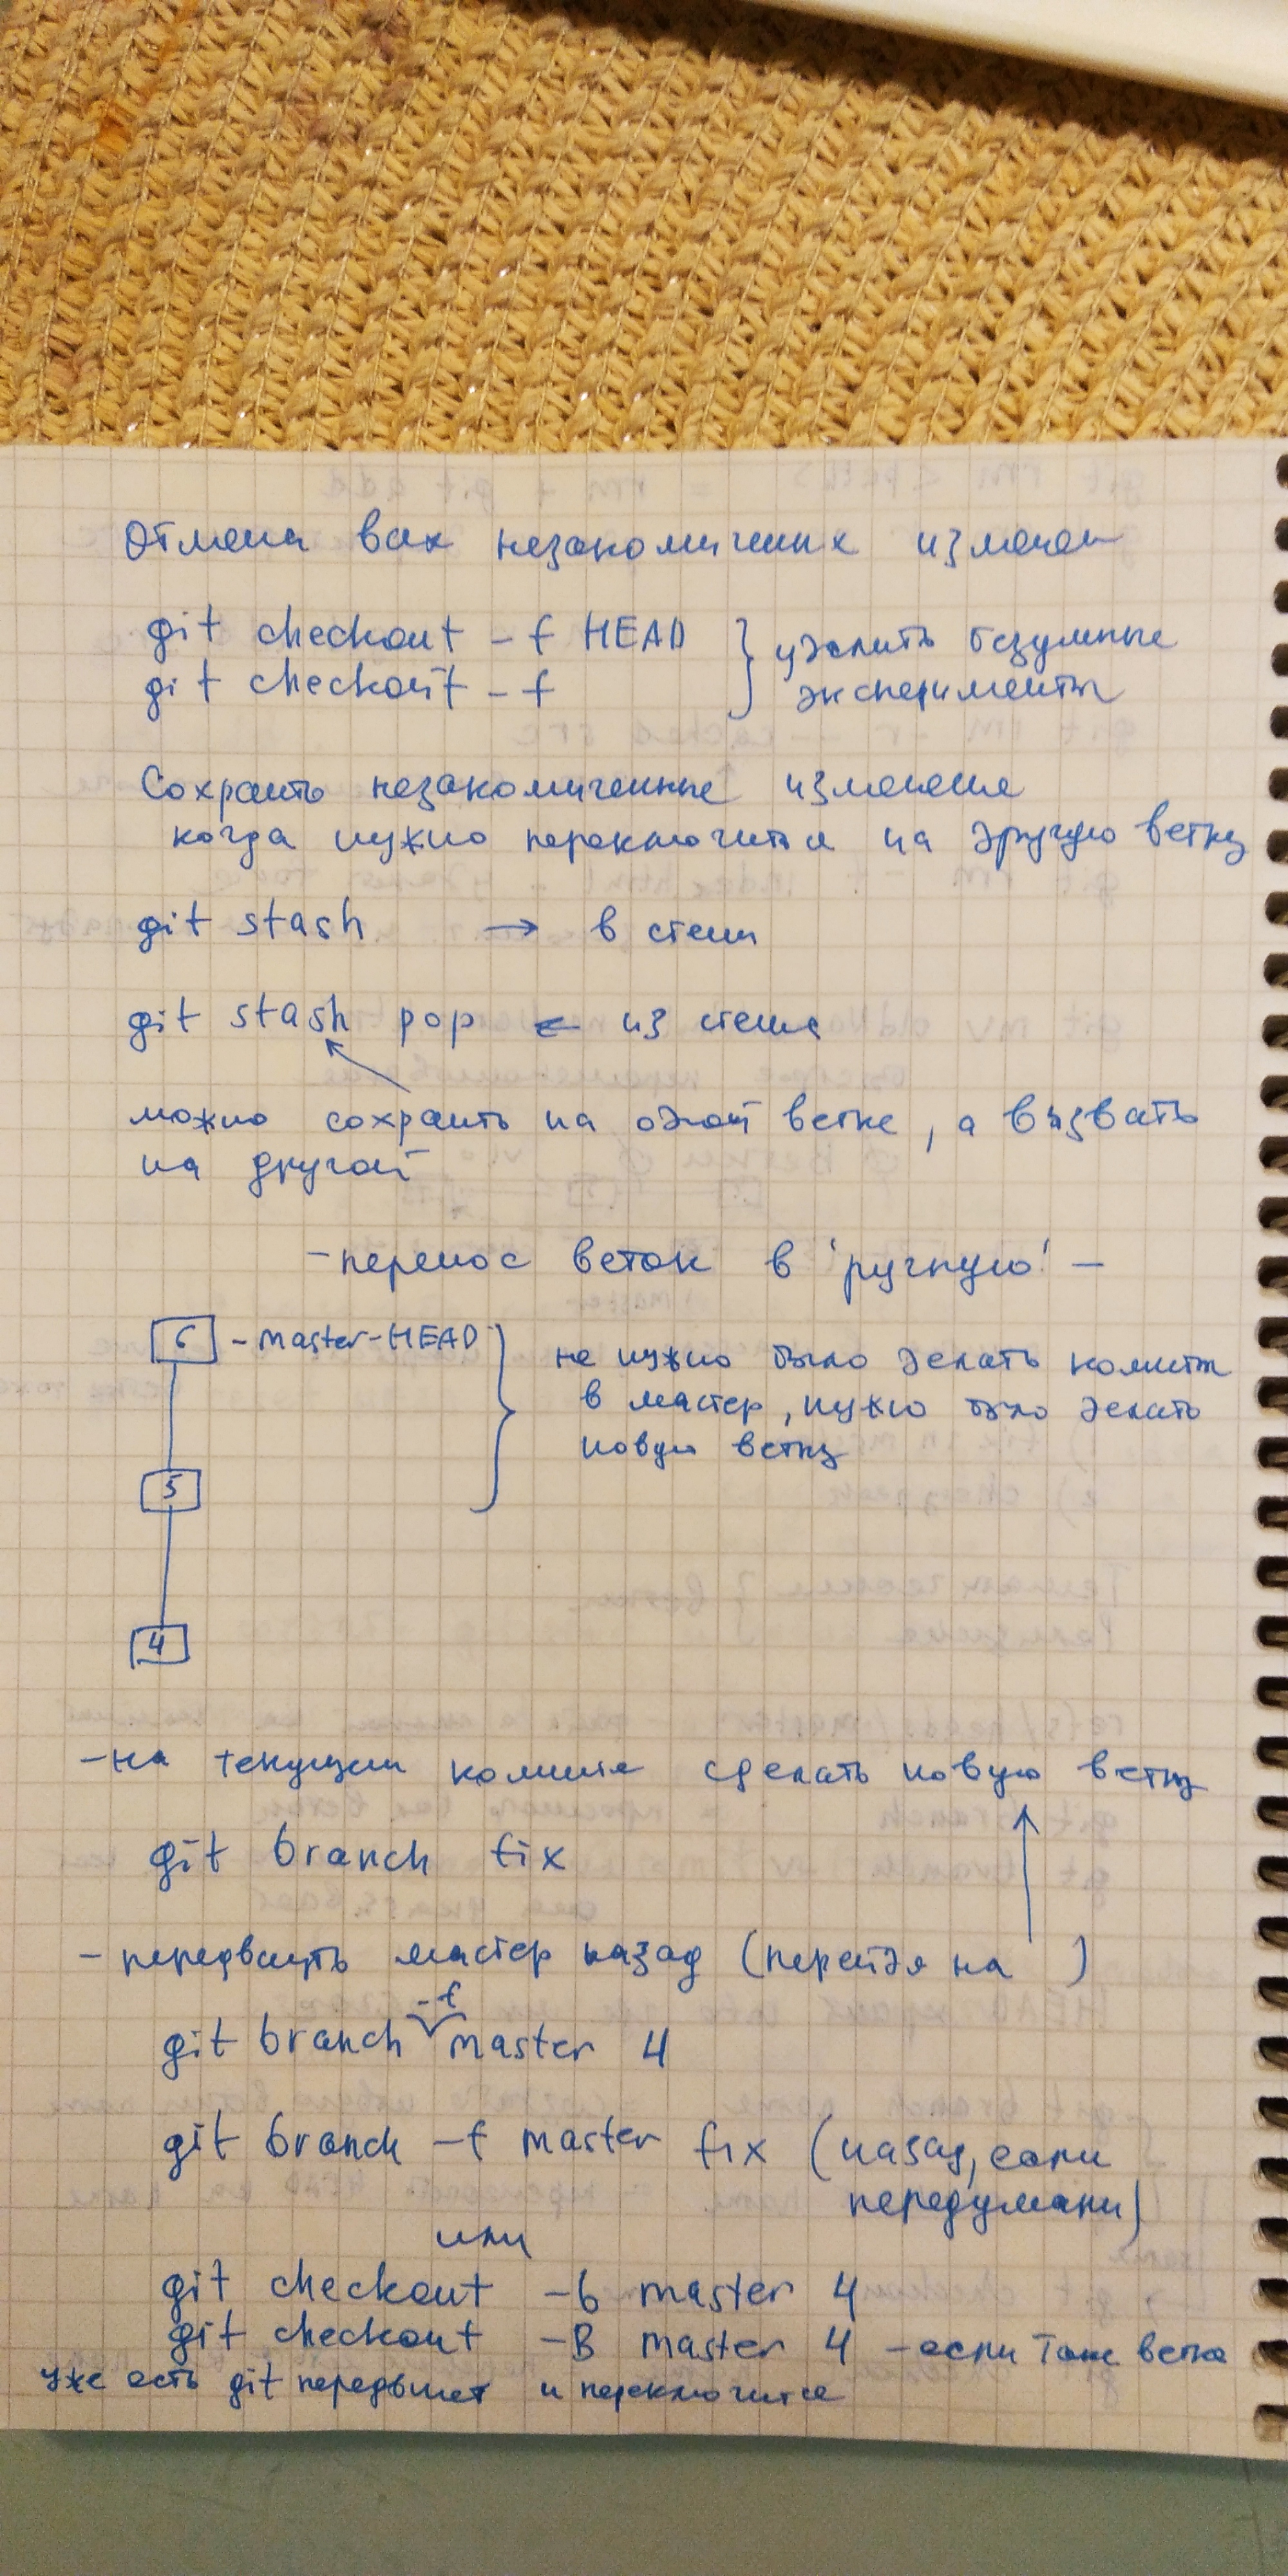 Отмена всех незакомиченых изменен
git checkout -f HEAD } удалить безумные
git checkout -f эксперименты
Сохранить незакомиченные изменение
когда нужно переключиться на другую ветку
git stash → в стеш
git stash pop ← из стеша
можно сохранить на одной ветке, а вызвать
на другой
- перенос веток в 'ручную' -
6 - master - HEAD } не нужно было делать комиты
в мастер, нужно было делать
новую ветку
5
4
- на текущем комите сделать новую ветку
git branch fix
- передвинуть мастер назад (перейдя на )
git branch -f master 4
git branch -f master fix (назад, если
передумали)
или
git checkout -b master 4
git checkout -B master 4 - если такая ветка
уже есть git передвинет и переключится